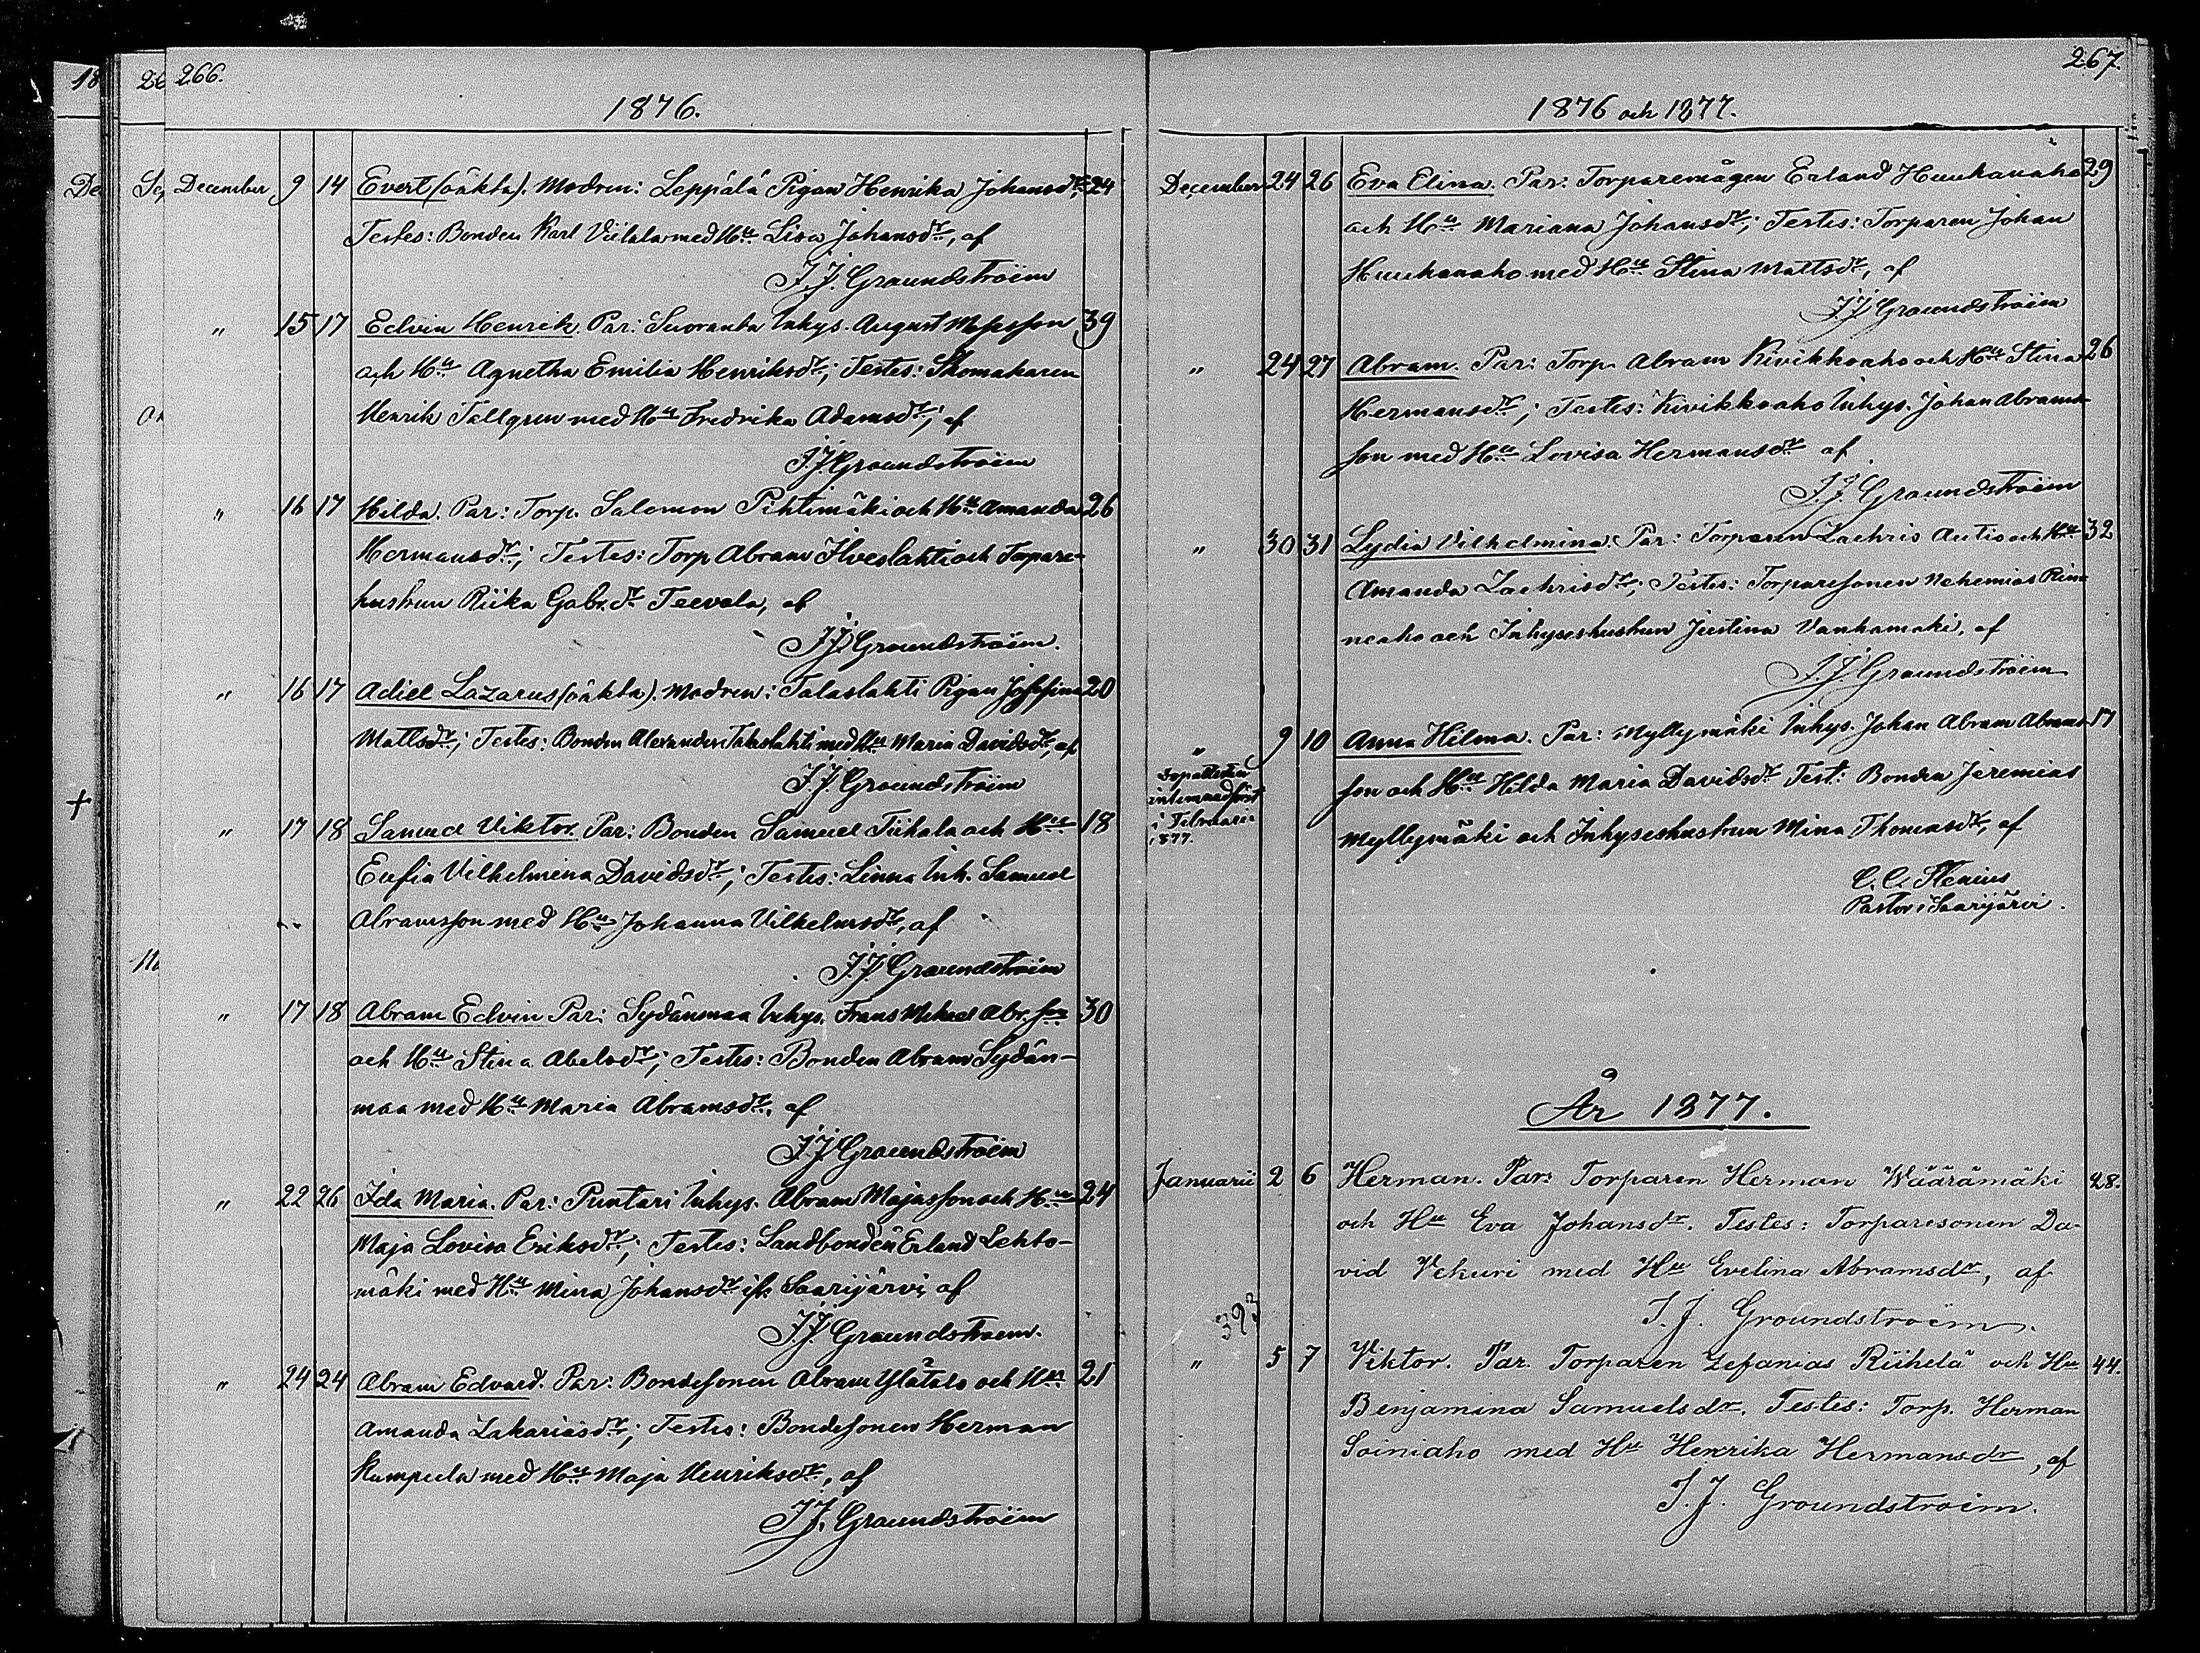 266.
1876.
December 9 14 Evert (oäkta). Modren: Leppälä Pigan Henrika Johansdr, 24
Testes: Bonden Karl Viitala med Hu Lisa Johansdr, af
J. J. Groundstroëm
" 15 17 Edvin Henrik. Par: Suoranta Inhys. August
och Hu Agnetha Emilia Henriksdr; Testes: Skomakaren 39
Henrik Tallgren med Hu Fredrika Adamsdr; af
J. J. Groundstroëm
" 16 17 Hilda. Par: Torp. Salomon Pihtimäki och Hu Amanda 26
Hermansdr; Testes: Torp Abram Ilveslahti och Torpare-
hustrun Riika Gabr.dr Teevala, af
J. J. Groundstroëm.
" 16 17 Adiel Lazarus (oäkta). Modren: Talaslahti Pigan Josefina 20
Mattsdr; Testes: Bonden Alexander Talaslahti med Hu Maria Davidsdr, af
J. J. Groundstroëm
" 17 18 Samuel Viktor. Par: Bonden Samuel Tiihala och Hu 18
Eufia Vilhelmina Davidsdr; Testes: Linna Inh. Samuel
Abramsson med Hu Johanna Vilhelmsdr, af
J. J. Groundstroëm
" 17 18 Abram Edvin Par: Sydänmaa Inhys. Frans Mikael Abr.son 30
och Hu Stina Abelsdr; Testes: Bonden Abram Sydän-
maa med Hu Maria Abramsdr, af
J. J. Groundstroëm
" 22 26 Ida Maria. Par: Puntari Inhys. Abram Majasson och Hu 24
Maja Lovisa Eriksdr; Testes: Landbonden Erland Lehto-
mäki med Hu Mina Johansdr ifr. Saarijärvi, af
J. J. Groundstroëm.
" 24 24 Abram Edvard. Par: Bondesonen Abram Ylätalo och Hu 21
Amanda Zakariasdr; Testes: Bondesonen Herman
Kumpula med Hu Maja Henriksdr, af
J. J. Groundstroëm
267.
1876 och 1877.
December 24 26 Eva Elina. Par: Torparemågen Erland Huuhanaho 29
och Hu Mariana Johansdr; Testes: Torparen Johan
Huuhanaho med Hu Stina Mattsdr, af
J. J. Groundstroëm
" 24 27 Abram. Par: Torp. Abram Kivikkoaho och Hu Stina 26
Hermansdr; Testes: Kivikkoaho Inhys. Johan Abrams-
son med Hu Lovisa Hermansdr af
J. J. Groundstroëm
" 30 31 Lydia Vilhelmina. Par: Torparen Zachris Autio och Hu 32
Amanda Zachrisdr; Testes: Torparesonen Nehemias Rin-
neaho och Inhyseshustrun Justina Vanhamäki, af
J. J. Groundstroëm
" 9 10 Anna Hilma. Par: Myllymäki Inhys. Johan Abram Abrams- 17
Dopattesten
först
i Februarii
1877.
son och Hu Hilda Maria Davidsdr Test: Bonden Jeremias
Myllymäki och Inhyseshustrun Mina Thomasdr, af
C. C. Stenius
Pastor i Saarijärvi.
År 1877.
Januarii 2 6 Herman. Par: Torparen Herman Wäärämäki 28.
och Hu Eva Johansdr. Testes: Torparesonen Da-
vid Vekuri med Hu Evelina Abramsdr, af
J. J. Groundstroëm.
393
" 5 7 Viktor. Par. Torparen Zefanias Riihelä och Hu 44.
Benjamina Samuelsdr. Testes: Torp. Herman
Soiniaho med Hu Henrika Hermansdr, af
J. J. Groundstroëm.